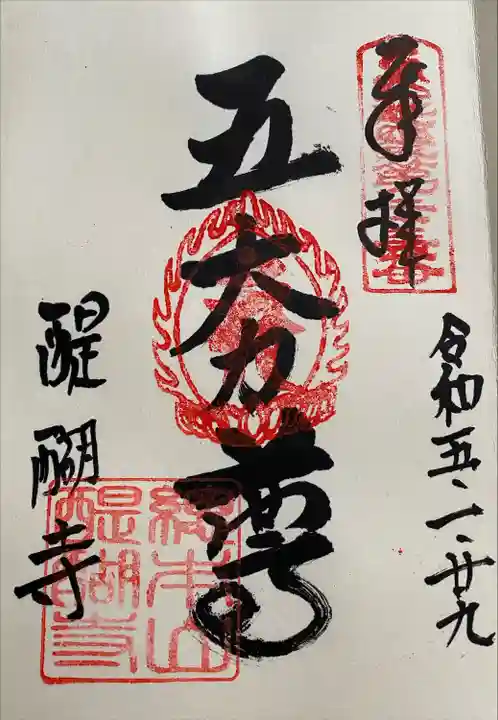 奉拝
令和五・一・廿九
五大力尊
醍醐寺
總本山
醍醐寺